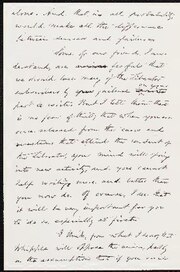 alone. And that in all probability
would make all the difference
between success and failure.
Some of our friends, I un-
derstand, are fearful that
we should lose many of the Liberator
subscribers by your
part a writer. But I tell them there
is no fear of that; that when you are
once released from the cares and
vexations that attend the conduct of
the Liberator, your mind will spring
into new activity, and you cannot
help writing more and better than
you now do. Of course, I see that
it will be very important for you
to do so, especially at first.
I think you what I say that
Whipple will oppose the union, partly
on the assumption that if you once